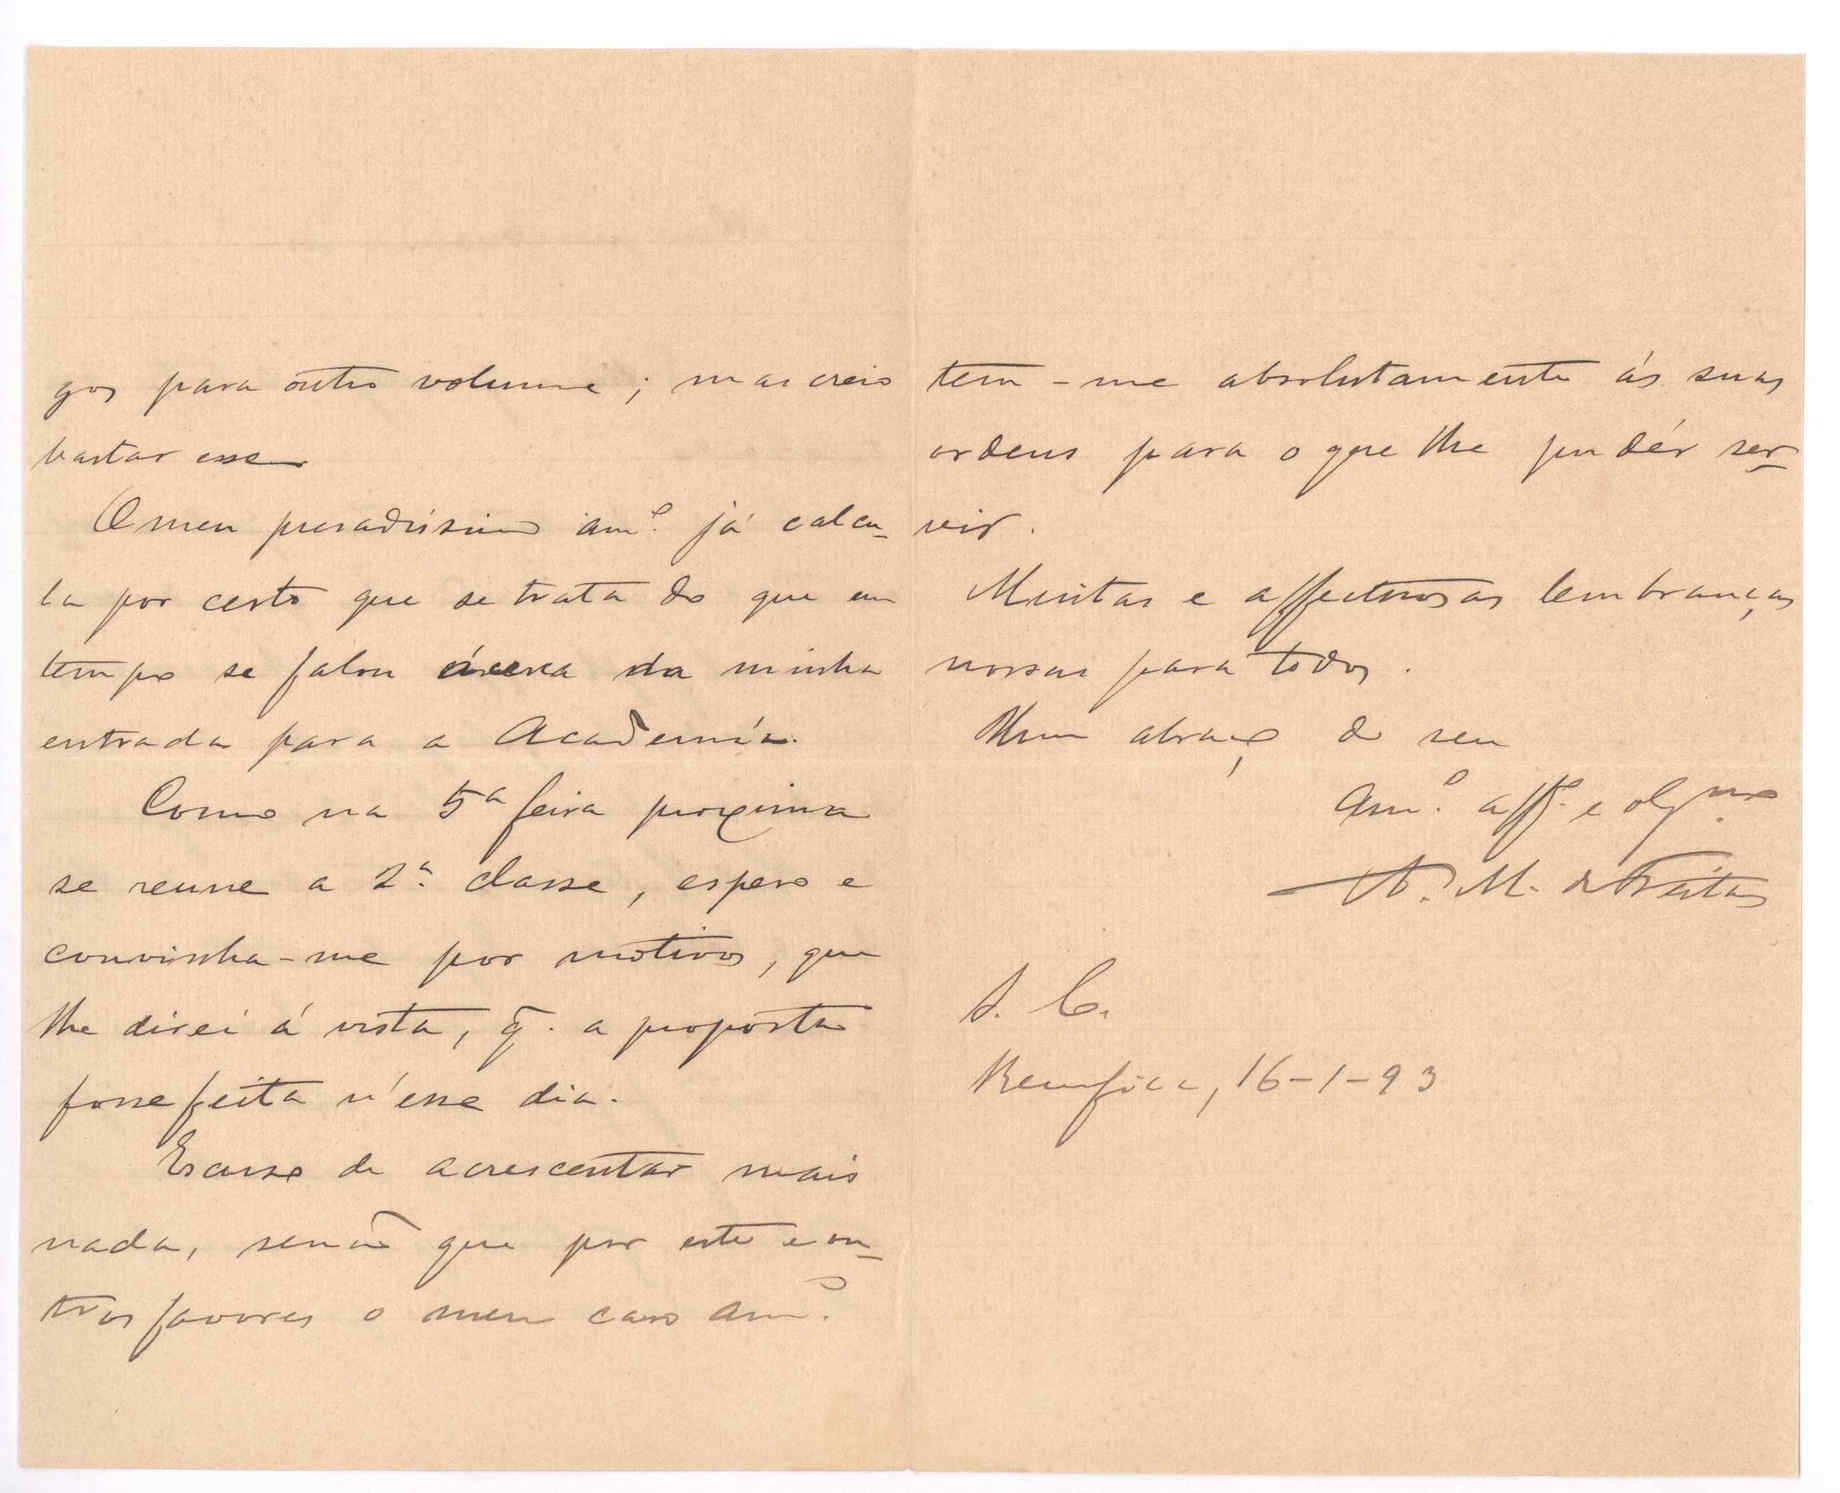 gos para outro volume; mas creio
bastar esse
O meu presadissimo am.º já calcu-
la por certo que se trata do que em
tempo se falou ácerca da minha
entrada para a Academía.
Como na 5ª feira proxima
se reune a 2.ª classe, espero e
convinha-me por motivos, que
lhe direi á vista, q̃. a proposta
fosse feita n'esse dia.
Escuso de acrescentar mais
nada, senão que por este e ou-
tros favores o meu caro am.º
tem-me absolutamente ás suas
ordens para o que lhe pudér ser-
vir.
Muitas e affectuosas lembranças
nossas para todos.
Hum abraço do seu
Am.º aff.º e obg.mo
M. de Freitas
S. C.
Bemfica, 16-1-93